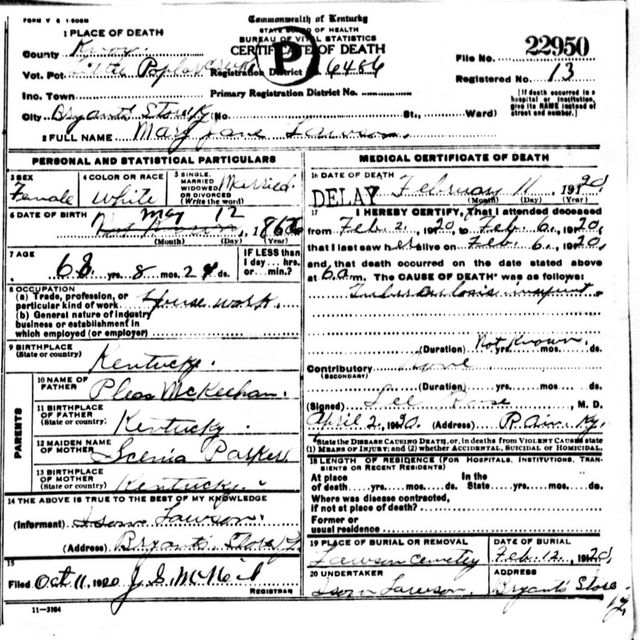 FORM V S 1-500M
Commonwealth of Kentucky
STATE BOARD OF HEALTH
BUREAU OF VITAL STATISTICS
CERTIFICATE OF DEATH
P
1 PLACE OF DEATH
County Knox
Vot. Pct. Little Poplar
Registration District No. 6486
File No. 22950
Inc. Town
Primary Registration District No.
Registered No. 13
City Bryants Store Ky (No. St., Ward)
(If death occurred in a hospital or institution, give its NAME instead of street and number.)
2 FULL NAME Mary Jane Lawson
PERSONAL AND STATISTICAL PARTICULARS
3 SEX Female
4 COLOR OR RACE White
5 SINGLE, MARRIED WIDOWED OR DIVORCED (Write the word) Married.
6 DATE OF BIRTH
May 12
(Month) (Day) (Year)
7 AGE
68 yrs. 8 mos. ds.
IF LESS than 1 day... hrs. or... min.?
8 OCCUPATION
(a) Trade, profession, or particular kind of work House work.
(b) General nature of industry business or establishment in which employed (or employer)
9 BIRTHPLACE
(State or country) Kentucky.
PARENTS
10 NAME OF FATHER Pleas McKeehan.
11 BIRTHPLACE OF FATHER
(State or country) Kentucky
12 MAIDEN NAME OF MOTHER Parker
13 BIRTHPLACE OF MOTHER
(State or country) Kentucky
14 THE ABOVE IS TRUE TO THE BEST OF MY KNOWLEDGE
(Informant) Isom Lawson.
(Address) Bryants Store Ky
15
Filed Oct 11, 1920 J. S. McNeil
REGISTRAR
11-3184
MEDICAL CERTIFICATE OF DEATH
16 DATE OF DEATH
DELAY February 11, 1920
(Month) (Day) (Year)
17 I HEREBY CERTIFY, that I attended deceased
from Feb 2, 1920, to Feb 6, 1920,
that I last saw her alive on Feb 6, 1920,
and that death occurred on the date stated above
at 6 a m. The CAUSE OF DEATH* was as follows:
Tuberculosis
(Duration) Not Known yrs. mos. ds.
Contributory
(SECONDARY)
(Duration) yrs. mos. ds.
(Signed) Lee Rose, M. D.
April 2, 1920 (Address) Rain, Ky.
*State the DISEASE CAUSING DEATH, or, in deaths from VIOLENT CAUSES state (1) MEANS OF INJURY; and (2) whether ACCIDENTAL, SUICIDAL or HOMICIDAL.
18 LENGTH OF RESIDENCE (FOR HOSPITALS, INSTITUTIONS, TRANSIENTS OR RECENT RESIDENTS)
At place of death yrs. mos. ds.
In the State yrs. mos. ds.
Where was disease contracted, if not at place of death?
Former or usual residence
19 PLACE OF BURIAL OR REMOVAL
Lawson Cemetery
DATE OF BURIAL
Feb. 12, 1920
20 UNDERTAKER
Isom Lawson.
ADDRESS
Bryants Store Ky